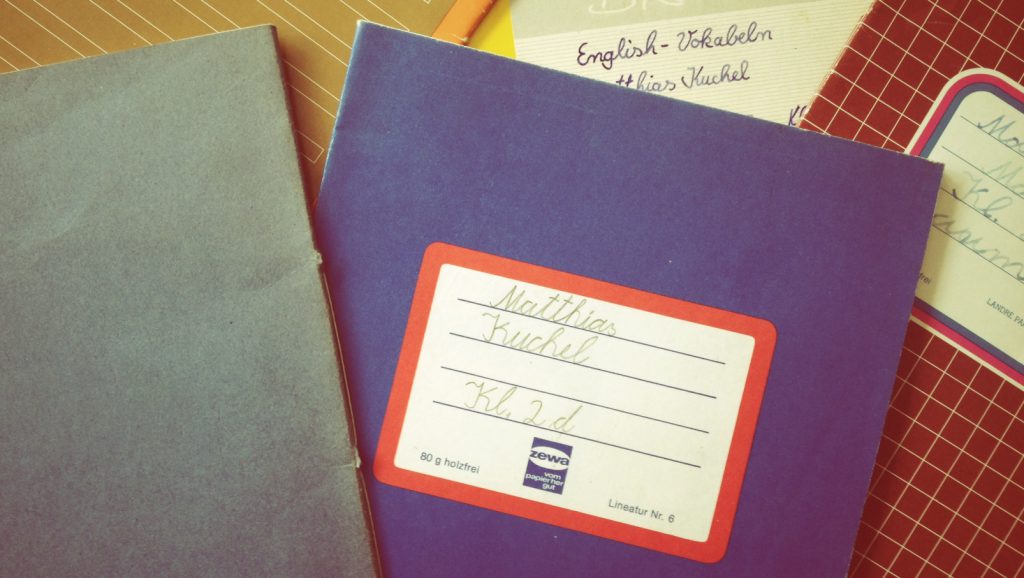 English-Vokabeln
Matthias Kuchel
Matthias
Kuchel
Kl. 2 d
80 g holzfrei
zewa
vom
papierher
gut
Lineatur Nr. 6
Kl.
LANDRE